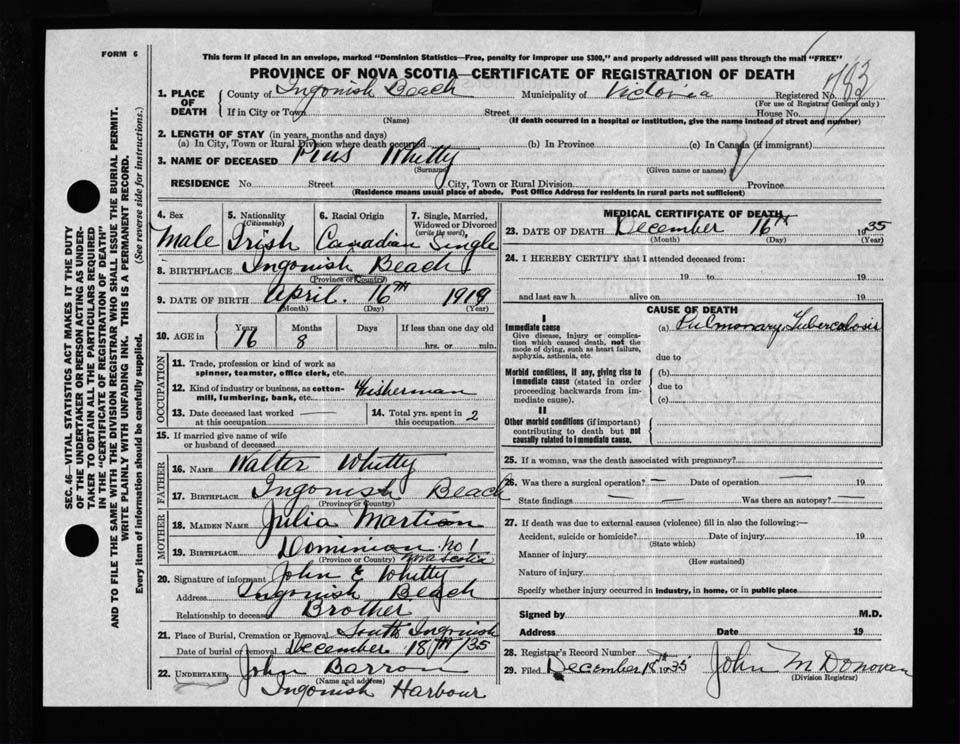 FORM 6
This form if placed in an envelope, marked "Dominion Statistics—Free, penalty for improper use $300," and properly addressed will pass through the mail "FREE"
PROVINCE OF NOVA SCOTIA—CERTIFICATE OF REGISTRATION OF DEATH
1. PLACE OF DEATH County of Ingonish Beach Municipality of Victoria Registered No. 783
(For use of Registrar General only)
If in City or Town Street House No.
(Name) (If death occurred in a hospital or institution, give the name instead of street and number)
2. LENGTH OF STAY (in years, months and days)
(a) In City, Town or Rural Division where death occurred (b) In Province (c) In Canada (if immigrant)
3. NAME OF DECEASED Pius Whitty
(Surname) (Given name or names)
RESIDENCE No. Street City, Town or Rural Division Province
(Residence means usual place of abode. Post Office Address for residents in rural parts not sufficient)
4. Sex
Male
5. Nationality (Citizenship)
Irish
6. Racial Origin
Canadian
7. Single, Married, Widowed or Divorced (write the word)
Single
8. BIRTHPLACE Ingonish Beach
(Province or Country)
9. DATE OF BIRTH April. 16TH 1919
(Month) (Day) (Year)
10. AGE in Years Months Days If less than one day old
16 8 hrs. or min.
OCCUPATION
11. Trade, profession or kind of work as spinner, teamster, office clerk, etc.
12. Kind of industry or business, as cotton-mill, lumbering, bank, etc. Fisherman
13. Date deceased last worked at this occupation —
14. Total yrs. spent in this occupation 2
15. If married give name of wife or husband of deceased
FATHER
16. NAME Walter Whitty
17. BIRTHPLACE Ingonish Beach
(Province or Country)
MOTHER
18. MAIDEN NAME Julia Martian
19. BIRTHPLACE Dominion No 1
(Province or Country) Nova Scotia
20. Signature of informant John E Whitty
Address Ingonish Beach
Relationship to deceased Brother
21. Place of Burial, Cremation or Removal South Ingonish
Date of burial or removal December 18TH/35
22. UNDERTAKER John Barron
(Name and address)
Ingonish Harbour
MEDICAL CERTIFICATE OF DEATH
23. DATE OF DEATH December 16TH 1935
(Month) (Day) (Year)
24. I HEREBY CERTIFY that I attended deceased from:
19 to 19
and last saw h alive on 19
CAUSE OF DEATH
I
Immediate cause
Give disease, injury or complication which caused death, not the mode of dying, such as heart failure, asphyxia, asthenia, etc.
(a) Pulmonary Tuberculosis
due to
Morbid conditions, if any, giving rise to immediate cause (stated in order proceeding backwards from immediate cause).
(b)
due to
(c)
II
Other morbid conditions (if important) contributing to death but not causally related to immediate cause.
25. If a woman, was the death associated with pregnancy?
26. Was there a surgical operation? — Date of operation — 19
State findings — — Was there an autopsy? —
27. If death was due to external causes (violence) fill in also the following:—
Accident, suicide or homicide? Date of injury 19
(State which)
Manner of injury
(How sustained)
Nature of injury
Specify whether injury occurred in industry, in home, or in public place
Signed by M.D.
Address Date 19
28. Registrar's Record Number
29. Filed December 18TH 1935 John M Donovan
(Division Registrar)
SEC. 46—VITAL STATISTICS ACT MAKES IT THE DUTY
OF THE UNDERTAKER OR PERSON ACTING AS UNDER-
TAKER TO OBTAIN ALL THE PARTICULARS REQUIRED
IN THE "CERTIFICATE OF REGISTRATION OF DEATH"
AND TO FILE THE SAME WITH THE DIVISION REGISTRAR WHO SHALL ISSUE THE BURIAL PERMIT.
WRITE PLAINLY WITH UNFADING INK. THIS IS A PERMANENT RECORD.
Every item of information should be carefully supplied. (See reverse side for instructions.)